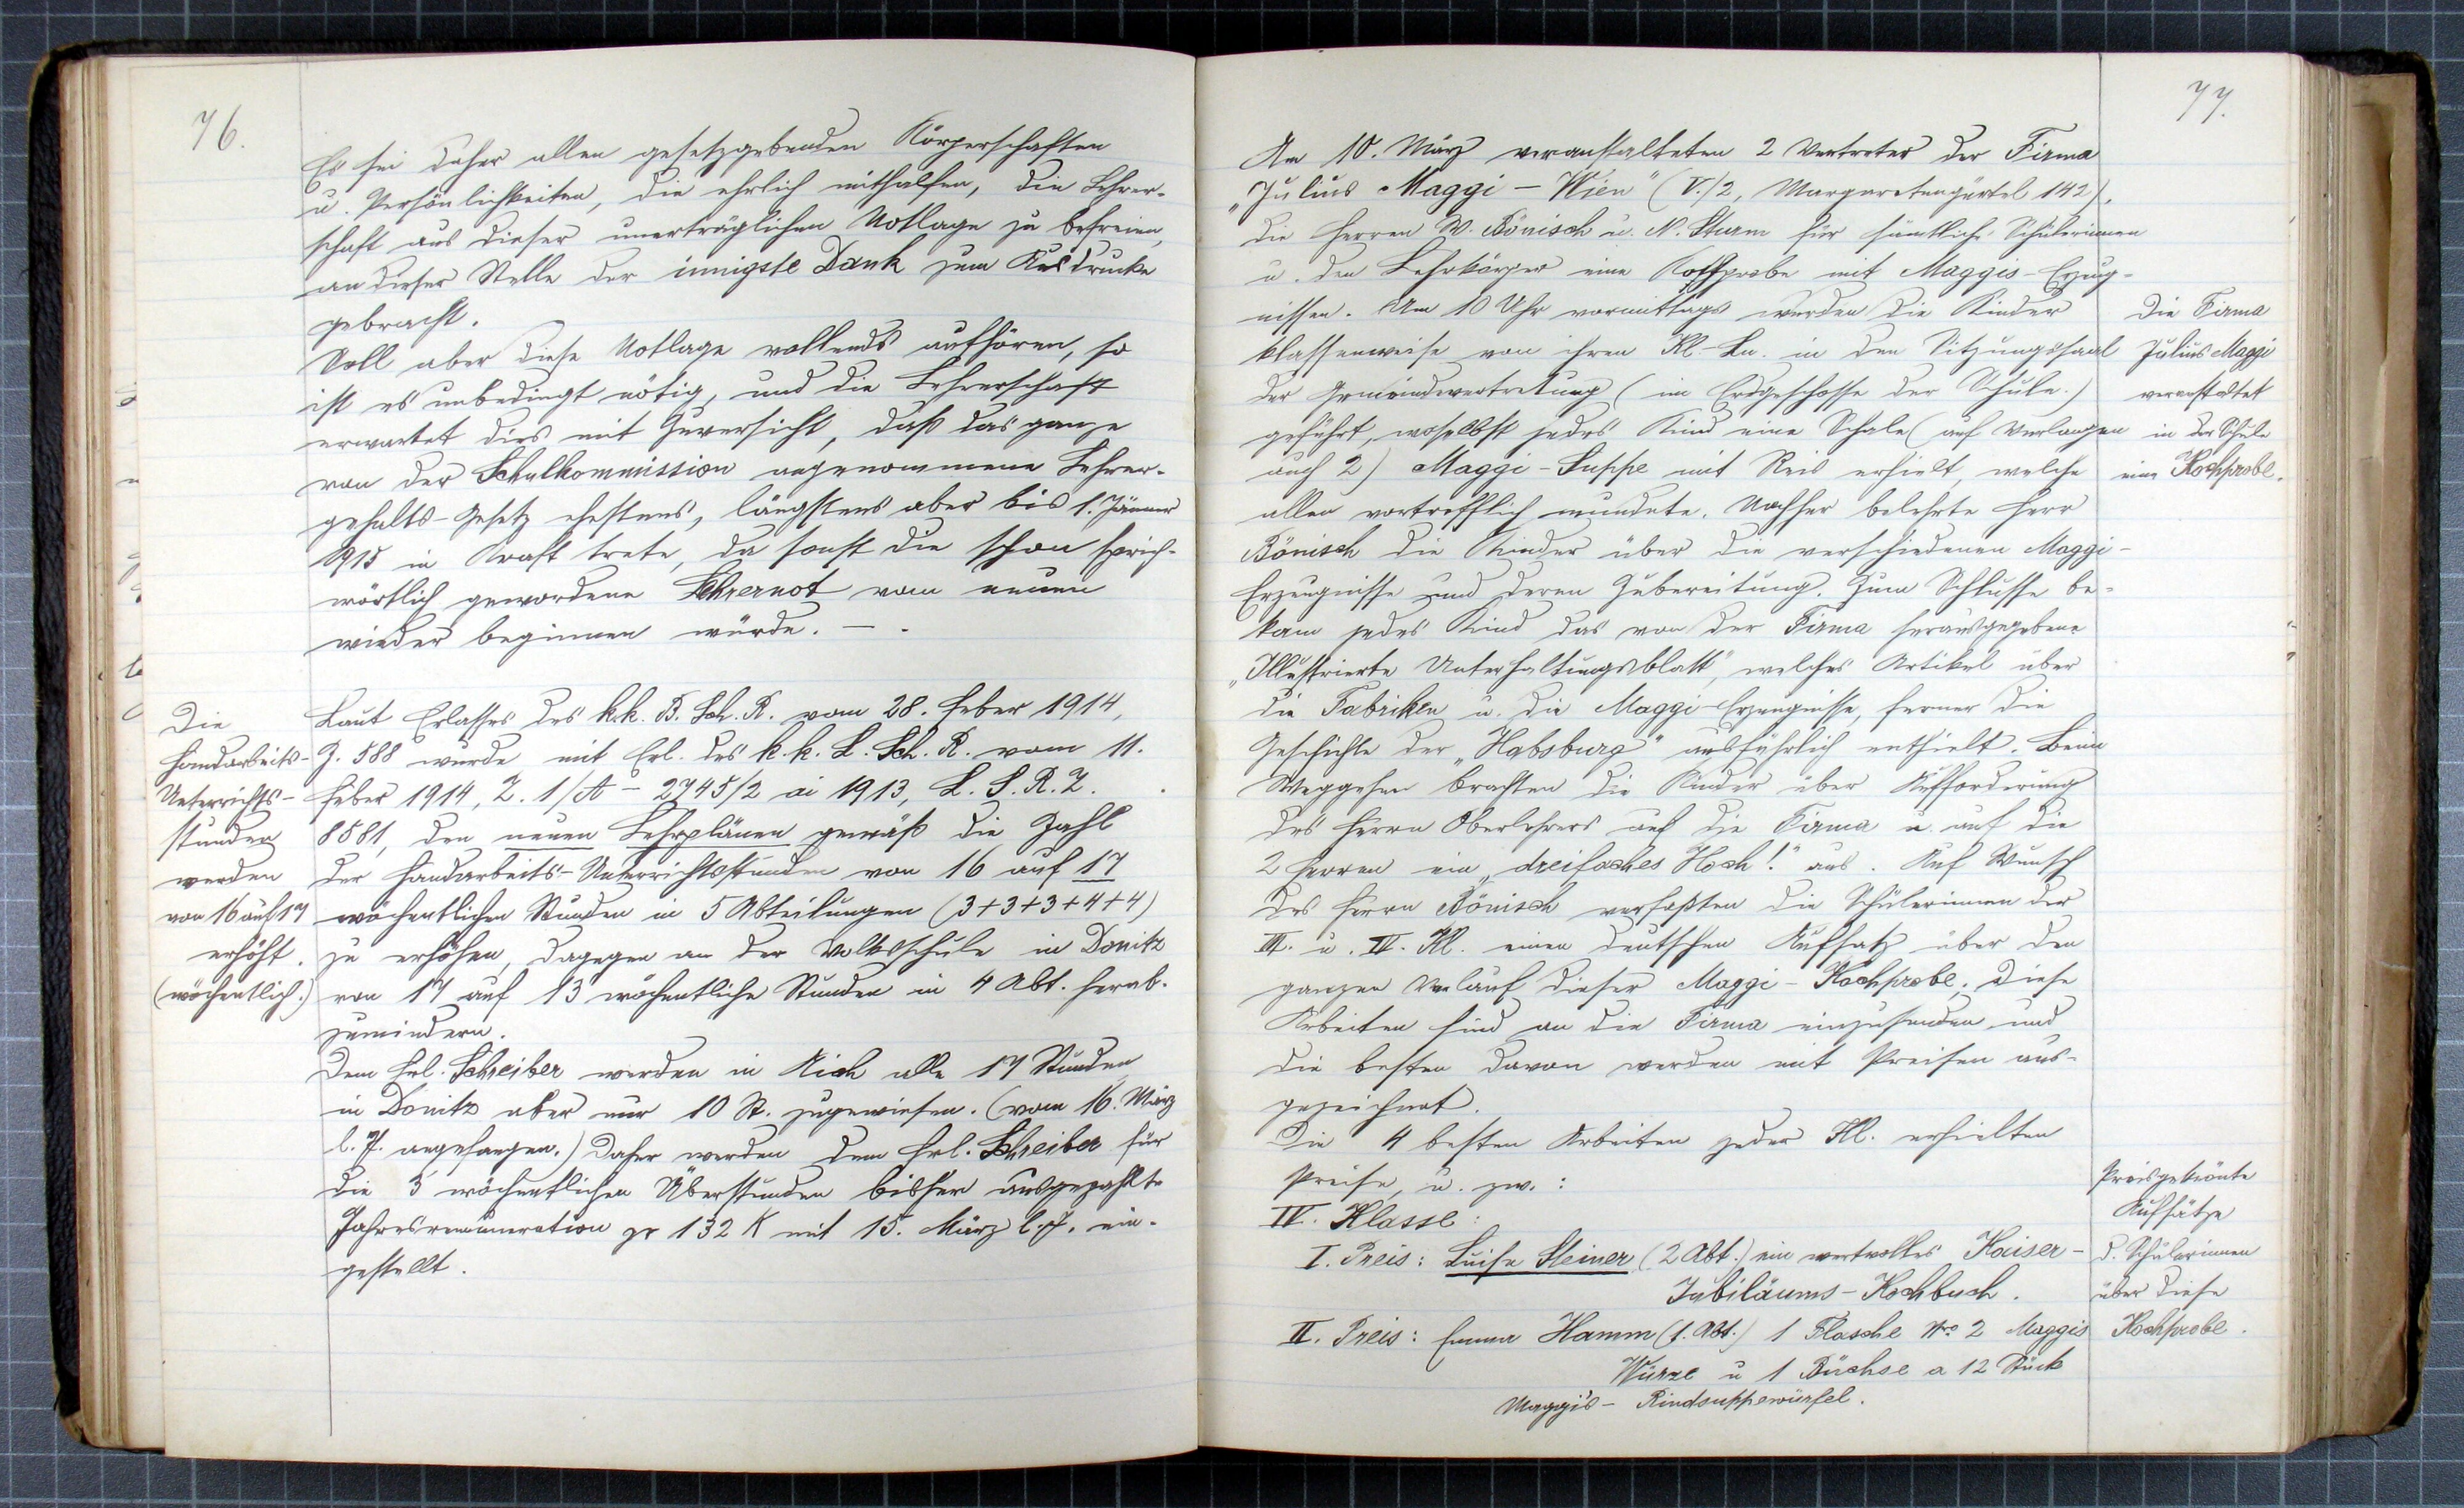 76.
Es sei daher allen gesetzgebenden Körperschaften
u. Persönlichkeiten, die ehrlich mithalfen, die Lehrer-
schaft aus dieser unerträglichen Notlage zu befreien,
an dieser Stelle der innigste Dank zum Ausdrucke
gebracht.
Soll aber diese Notlage vollends aufhören, so
ist es unbedingt nötig, und die Lehrerschaft
erwartet dies mit Zuversicht, daß das ganze
von der Schulkommission angenommene Lehrer-
gehalts-Gesetz ehestens, längstens aber bis 1. Jänner
1915 in Kraft trete, da sonst die schon sprich-
wörtlich gewordene Lehrernot vom neuen
wieder beginnen würde. — .
Die
Handarbeits-
Unterrichts-
stunden
werden
von 16 auf 17
erhöht.
(wöchentlich.)
Laut Erlasses des k.k. B. Sch. R. vom 28. Feber 1914,
Z. 588 wurde mit Erl. des k.k. L. Sch. R. vom 11.
Feber 1914, Z. 1/A – 2745/2 ai 1913, L. S. R. Z.
8581, den neuen Lehrplänen gemäß die Zahl
der Handarbeits-Unterrichtsstunden von 16 auf 17
wöchentlichen Stunden in 5 Abteilungen (3+3+3+4+4)
zu erhöhen, dagegen an der Volksschule in Donitz
von 17 auf 13 wöchentliche Stunden in 4 Abt. herab-
zumindern.
Dem Frl. Schreiber werden in Aich alle 17 Stunden
in Donitz aber nur 10 St. zugewiesen. (vom 16. März
l. J. angefangen.) Daher werden dem Frl. Schreiber für
die 5 wöchentlichen Überstunden bisher ausgezahlte
Jahresremuneration pr 132 K mit 15. März l. J. ein-
gestellt.
77.
Am 10. März veranstalteten 2 Vertreter der Firma
„Julius Maggi – Wien" (V./2, Margaretengürtel 142),
die Herren W. Bönisch u. N. Sturm für sämtliche Schülerinnen
u. den Lehrkörper eine Kochprobe mit Maggis-Erzeug-
nissen. Um 10 Uhr vormittags wurden die Kinder
klassenweise von ihren Kl.-Ln. in den Sitzungssaal
der Gemeindevertretung (im Erdgeschosse der Schule.)
geführt, woselbst jedes Kind eine Schale (auf Verlangen
auch 2) Maggi-Suppe mit Reis erhielt, welche
allen vortrefflich mundete. Nachher belehrte Herr
Bönisch die Kinder über die verschiedenen Maggi-
Erzeugnisse und deren Zubereitung. Zum Schlusse be-
kam jedes Kind das von der Firma herausgegebene
„Illustrierte Unterhaltungsblatt", welches Artikel über
die Fabriken u. die Maggi-Erzeugnisse, ferner die
Geschichte der „Habsburg" ausführlich enthielt. Beim
Weggehen brachten die Kinder über Aufforderung
des Herrn Oberlehrers auf die Firma u. auf die
2 Herren ein „dreifaches Hoch!" aus. Auf Wunsch
des Herrn Bönisch verfaßten die Schülerinnen der
III. u. IV. Kl. einen deutschen Aufsatz über den
ganzen Verlauf dieser Maggi-Kochprobe. Diese
Arbeiten sind an die Firma einzusenden und
die besten davon werden mit Preisen aus-
gezeichnet.
Die 4 besten Arbeiten jeder Kl. erhielten
Preise, u. zw.:
IV. Klasse:
I. Preis: Luise Steiner (2 Abt.) ein wertvolles Kaiser-
Jubiläums-Kochbuch.
II. Preis: Emma Hamm (1. Abt.) 1 Flasche No 2 Maggis
Würze u 1 Büchse a 12 Stück
Maggi's – Rindsuppewürfel.
Die Firma
Julius Maggi
veranstaltet
in der Schule
eine Kochprobe.
Preisgekrönte
Aufsätze
d. Schülerinnen
über diese
Kochprobe.